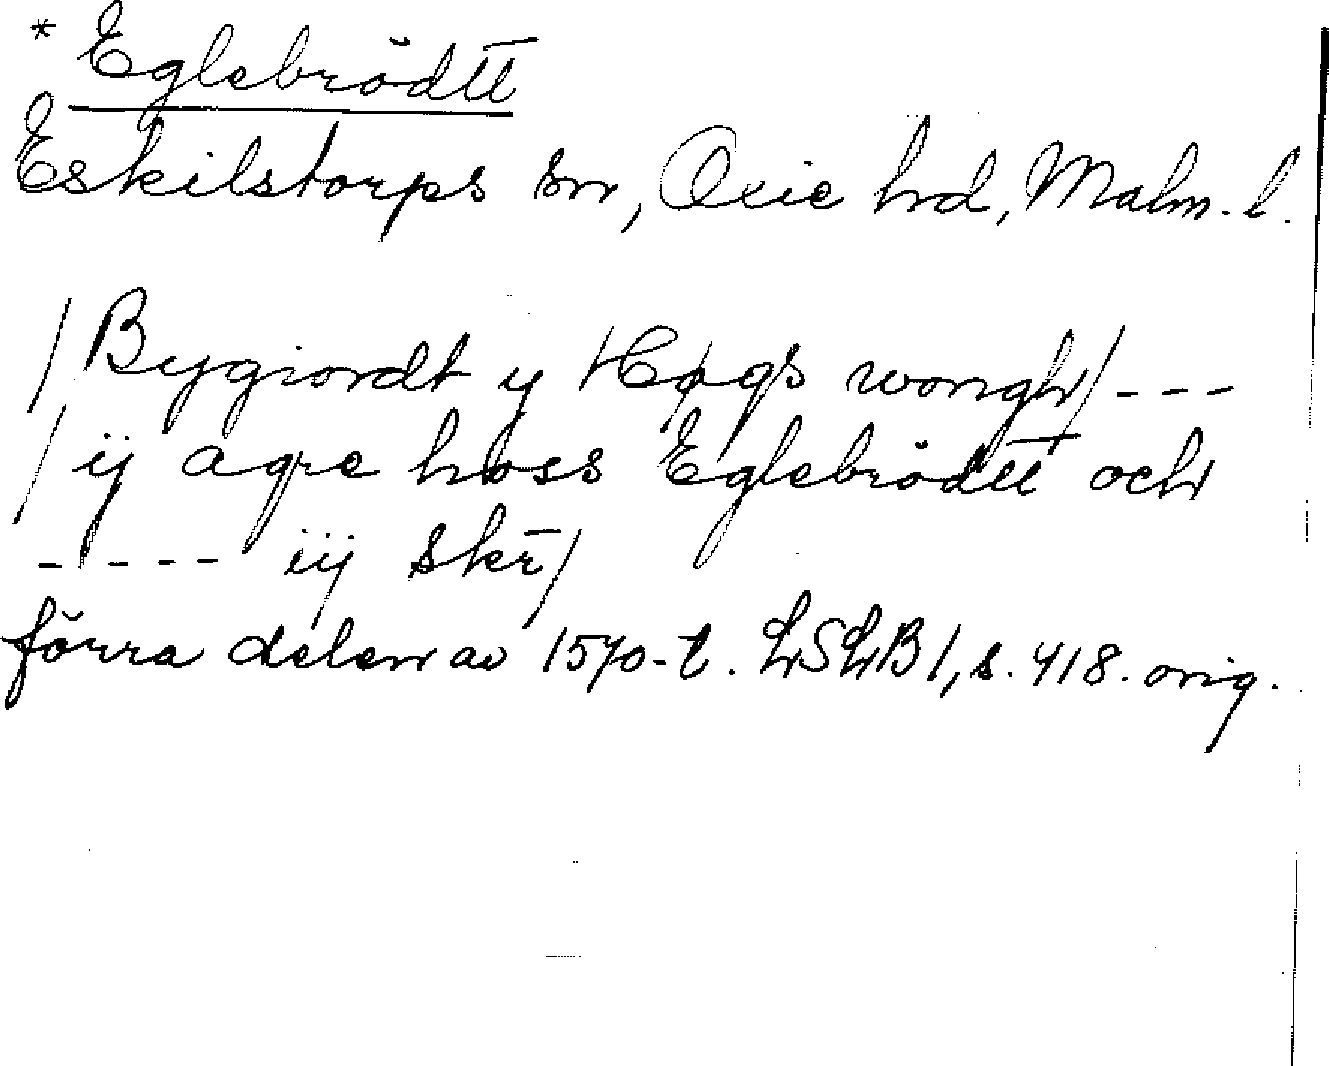 * Eglebrödtt
Eskilstorps sn, Oxie hd, Malm. l.
/Bygiordt y Høgs wongh/ - - -
/ ij agre hoss Eglebrödtt och
- - - - - iij skr̄/
förra delen av 1570-t. LSLB 1, s. 418. orig.